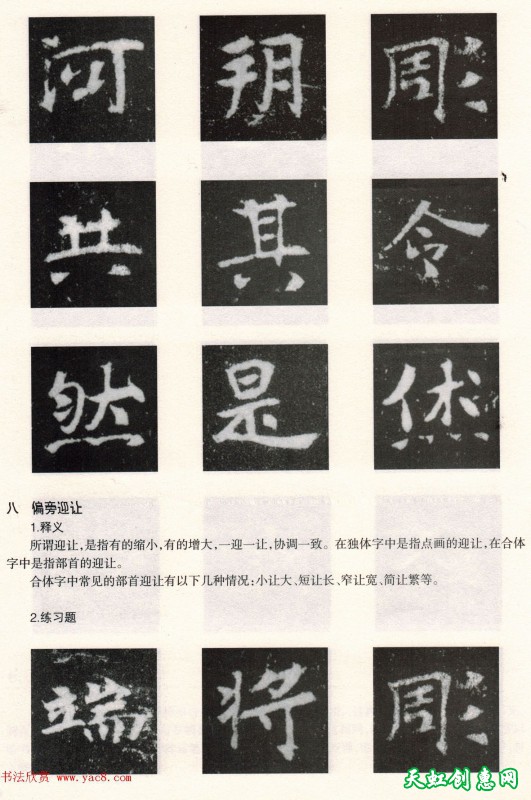 河 彫
共 其 令
然 是
八 偏旁迎让
1.释义
所谓迎让,是指有的缩小,有的增大,一迎一让,协调一致。在独体字中是指点画的迎让,在合体
字中是指部首的迎让。
合体字中常见的部首迎让有以下几种情况;小让大、短让长、窄让宽、简让繁等。
2.练习题
端 将 彫
书法欣赏 www.yac8.com
天虹创意网